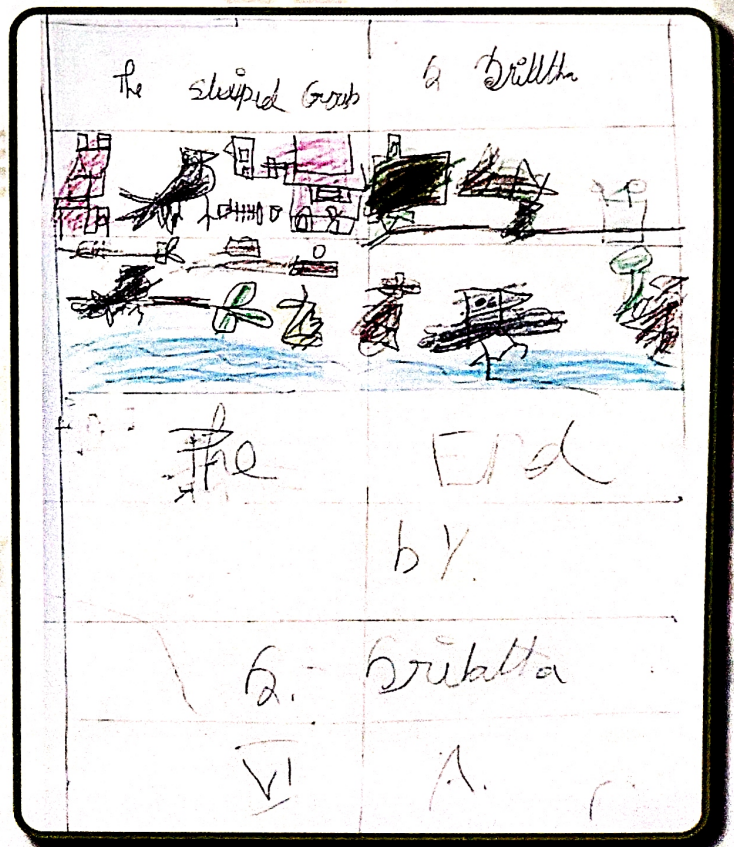 The stuipid Grob G Srilltha
The End
by.
G. Srilatta
VI A.